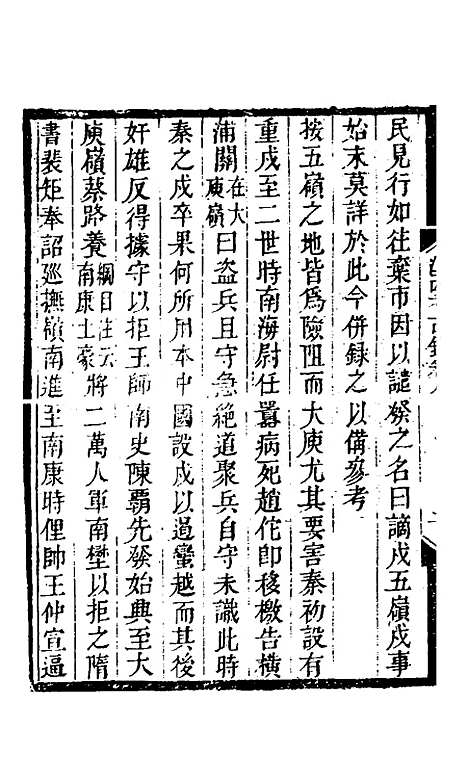 民見行如往棄市因以讁發之名曰謫戍五嶺戍事
始末莫詳於此今併録之以備參考
按五嶺之地皆爲險阻而大庾尤其要害秦初設有
重戍至二世時南海尉任囂病死趙佗即移檄告橫
浦關在大庾嶺曰盜兵且守急絶道聚兵自守未識此時
秦之戍卒果何所用本中國設戍以遏蠻越而其後
奸雄反得據守以拒王師南史陳霸先發始興至大
庾嶺蔡路養綱目注云南康土豪將二萬人軍南壄以拒之隋
書裴矩奉詔廵撫嶺南進至南康時俚帥王仲宣逼